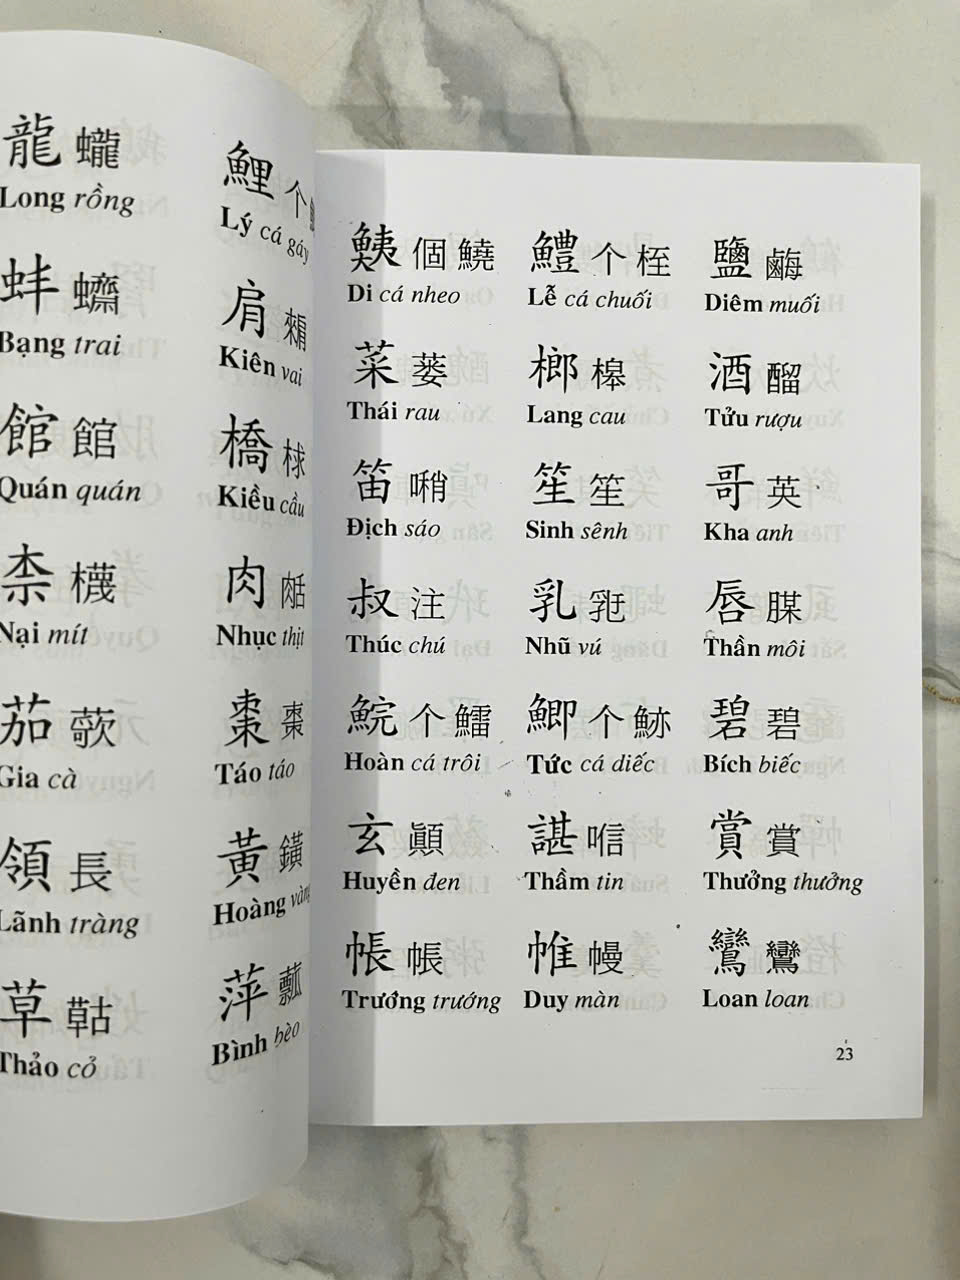 龍 蠬 鯉 个
Long rồng Lý cá gáy
蚌 蠐 肩
Bạng trai Kiên vai
館 館 橋 梂
Quán quán Kiều cầu
柰 櫗 肉
Nại mít Nhục thịt
茄 棗 棗
Gia cà Táo táo
領 長 黃 鐄
Lãnh tràng Hoàng vàng
草 萍 瓢
Thảo cỏ Bình bèo
鮧 個 鱙 鱧 个 桎 鹽
Di cá nheo Lễ cá chuối Diêm muối
菜 蒌 榔 槔 酒 醹
Thái rau Lang cau Tửu rượu
笛 哨 笙 笙 哥 英
Địch sáo Sinh sênh Kha anh
叔 注 乳 唇 腜
Thúc chú Nhũ vú Thần môi
鯇 个 鱩 鯽 个 碧 碧
Hoàn cá trôi Tức cá diếc Bích biếc
玄 顚 諶 㗂 賞 賞
Huyền đen Thầm tin Thưởng thưởng
帳 帳 帷 幔 鸞 鸞
Trướng trướng Duy màn Loan loan
23